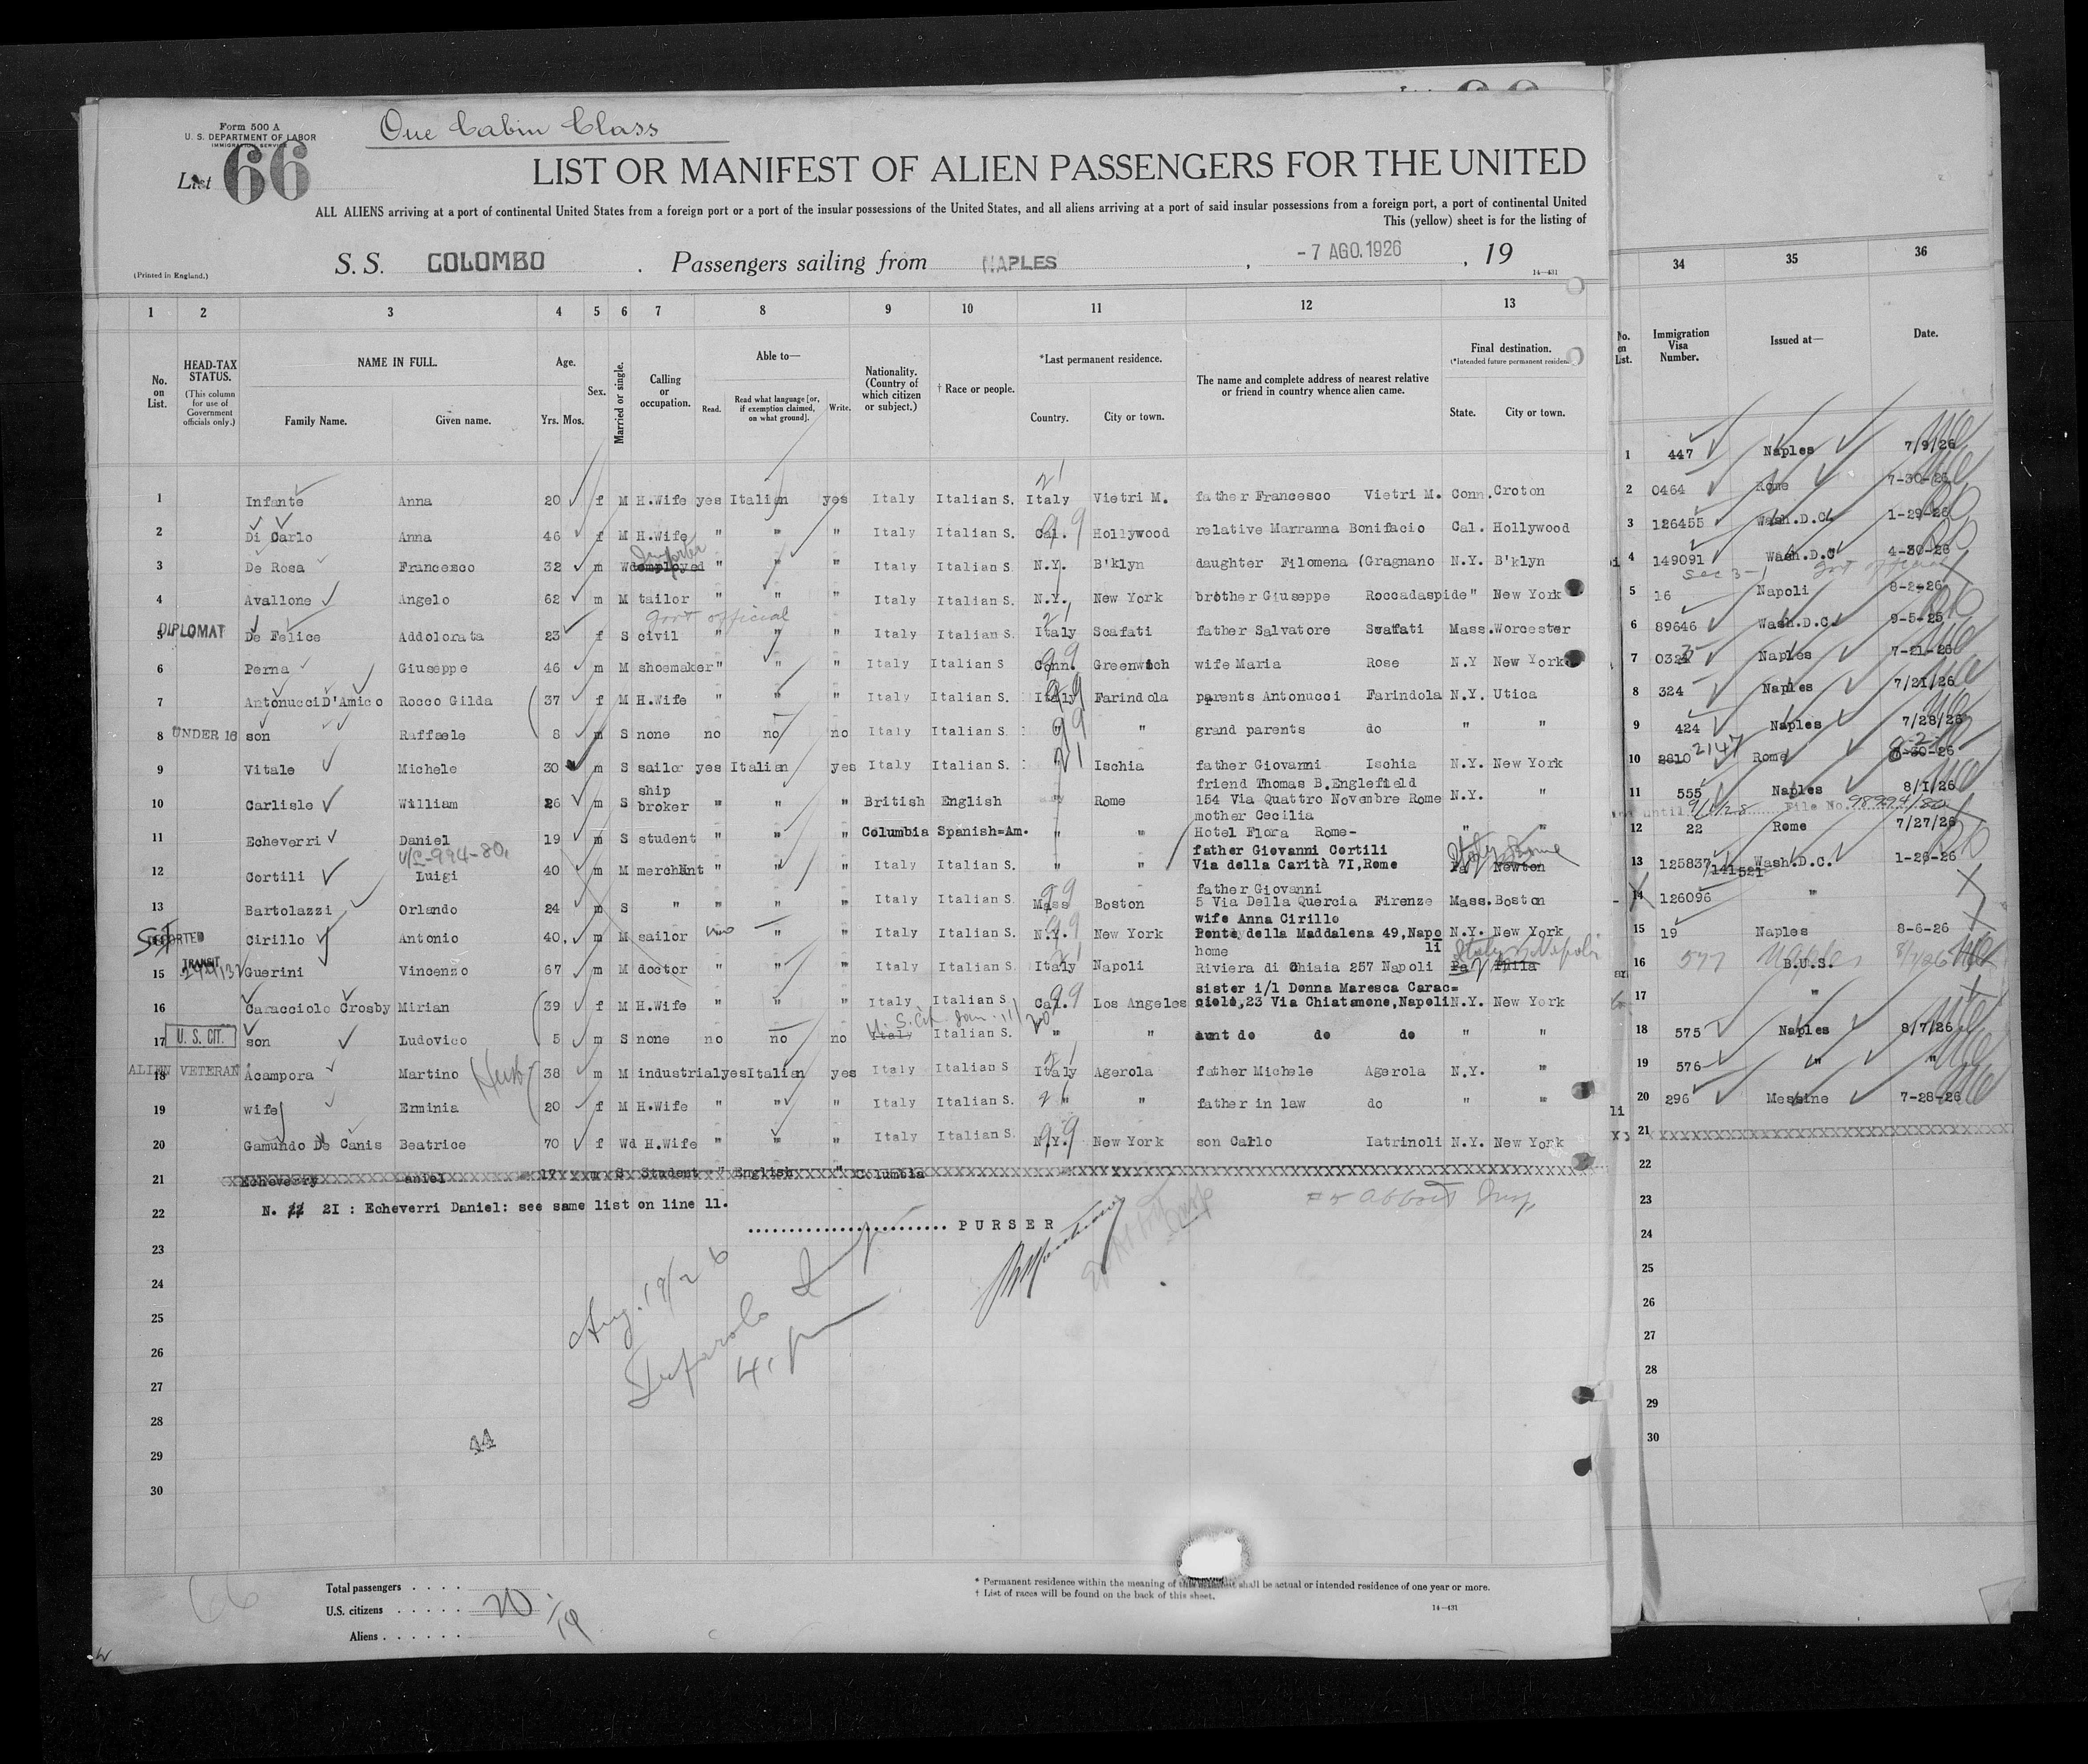 Form 500 A
U. S. DEPARTMENT OF LABOR
IMMIGRATION SERVICE
One Cabin Class
List 66
LIST OR MANIFEST OF ALIEN PASSENGERS FOR THE UNITED
ALL ALIENS arriving at a port of continental United States from a foreign port or a port of the insular possessions of the United States, and all aliens arriving at a port of said insular possessions from a foreign port, a port of continental United
This (yellow) sheet is for the listing of
(Printed in England.)
S. S. COLOMBO . Passengers sailing from NAPLES , -7 AGO.1926 , 19
14—431
1 2 3 4 5 6 7 8 9 10 11 12 13
No. on List.
HEAD-TAX STATUS. (This column for use of Government officials only.)
NAME IN FULL.
Family Name. Given name.
Age. Yrs. Mos.
Sex.
Married or single.
Calling or occupation.
Able to—
Read. Read what language [or, if exemption claimed, on what ground]. Write.
Nationality. (Country of which citizen or subject.)
† Race or people.
*Last permanent residence.
Country. City or town.
The name and complete address of nearest relative or friend in country whence alien came.
Final destination.
(*Intended future permanent residen
State. City or town.
1 Infante Anna 20 f M H.Wife yes Italian yes Italy Italian S. Italy Vietri M. father Francesco Vietri M. Conn. Croton
2 Di Carlo Anna 46 f M H.Wife " " " Italy Italian S. Cal. Hollywood relative Marranna Bonifacio Cal. Hollywood
3 De Rosa Francesco 32 m Wd employed " " " Italy Italian S. N.Y. B'klyn daughter Filomena (Gragnano N.Y. B'klyn
4 Avallone Angelo 62 m M tailor " " " Italy Italian S. N.Y. New York brother Giuseppe Roccadaspide " New York
Govt official
5 DIPLOMAT De Felice Addolorata 23 f S civil " " " Italy Italian S. Italy Scafati father Salvatore Scafati Mass. Worcester
6 Perna Giuseppe 46 m M shoemaker " " " Italy Italian S Conn. Greenwich wife Maria Rose N.Y New York
7 Antonucci D'Amico Rocco Gilda 37 f M H.Wife " " " Italy Italian S. Italy Farindola parents Antonucci Farindola N.Y. Utica
8 UNDER 16 son Raffaele 8 m S none no no no Italy Italian S. " " grand parents do " "
9 Vitale Michele 30 m S sailor yes Italian yes Italy Italian S. Ischia father Giovanni Ischia N.Y. New York
10 Carlisle William 26 m S ship broker " " " British English " Rome friend Thomas B.Englefield 154 Via Quattro Novembre Rome N.Y. "
11 Echeverri Daniel 19 m S student " " " Columbia Spanish=Am. " " mother Cecilia Hotel Flora Rome- " "
12 Cortili Luigi 40 m M merchant " " " Italy Italian S. " " father Giovanni Cortili Via della Carità 7I,Rome Pa Newton Italy Rome
13 Bartolazzi Orlando 24 m S " " " " Italy Italian S. Mass Boston father Giovanni 5 Via Della Quercia Firenze Mass. Boston
DEPORTED Cirillo Antonio 40 m M sailor " " Italy Italian S. N.Y. New York wife Anna Cirillo Ponte della Maddalena 49,Napoli N.Y. New York
15 TRANSIT Guerini Vincenzo 67 m M doctor " " " Italy Italian S. Italy Napoli home Riviera di Chiaia 257 Napoli Pa Phila Italy Napoli
16 Caracciolo Crosby Mirian 39 f M H.Wife " " " Italy Italian S Cal. Los Angeles sister i/l Donna Maresca Carac=ciolo,23 Via Chiatamone,Napoli N.Y. New York
17 U. S. CIT. son Ludovico 5 m S none no no no Italy Italian S. " " aunt do do do " "
18 ALIEN VETERAN Acampora Martino 38 m M industrial yes Italian yes Italy Italian S Italy Agerola father Michele Agerola N.Y. "
19 wife Erminia 20 f M H.Wife " " " Italy Italian S. " " father in law do " "
20 Gamundo De Canis Beatrice 70 f Wd H.Wife " " " Italy Italian S. N.Y. New York son Carlo Iatrinoli N.Y. New York
21 Echeverry Daniel 17 m S Student " English " Columbia
22 N. 2I : Echeverri Daniel: see same list on line 11.
PURSER
23
24
25
26
27
28
29
30
Aug. 19/26
Total passengers . . . .
U.S. citizens . . . . . 20
Aliens . . . . . . 19
* Permanent residence within the meaning of this shall be actual or intended residence of one year or more.
† List of races will be found on the back of this sheet.
14—431
34 35 36
No. on List.
Immigration Visa Number.
Issued at—
Date.
1 447 Naples 7/9/26
2 0464 Rome 7-30-26
3 126455 Wash.D.C. 1-29-26
4 149091 Wash.D.C 4-30-26
5 16 Napoli 8-2-26
6 89646 Wash.D.C. 9-5-25
7 Naples 7-21-26
8 324 Naples 7/21/26
9 424 Naples 7/28/26
10 2810 2147 Rome
11 555 Naples 8/1/26
12 22 Rome 7/27/26
13 125837 /141521 Wash.D.C. 1-26-26
14 126096 "
15 19 Naples 8-6-26
16 577 Naples B.U.S.
17 "
18 575 Naples 8/7/26
19 576 " "
20 296 Messine 7-28-26
21
22
23
24
25
26
27
28
29
30